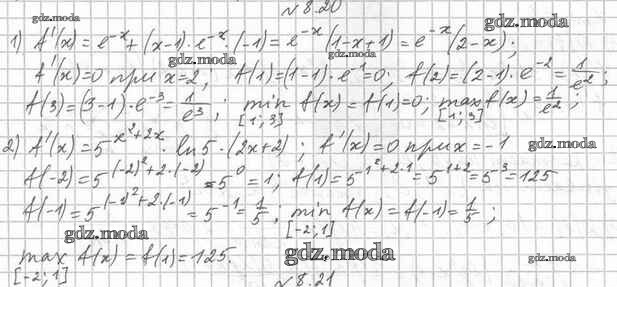 № 8.20
gdz.moda
1) f'(x) = e^{-x} + (x-1)·e^{-x}·(-1) = e^{-x}(1-x+1) = e^{-x}(2-x);
gdz.moda
f'(x)=0 при x=2; f(1)=(1-1)·e^{-1}=0; f(2)=(2-1)·e^{-2}=1/e^2;
gdz.moda
f(3)=(3-1)·e^{-3}=1/e^3; min f(x)=f(1)=0; max f(x)=1/e^2;
[1;3] [1;3]
gdz.moda gdz.moda
2) f'(x)=5^{x^2+2x}·ln5·(2x+2); f'(x)=0 при x=-1
gdz.moda
f(-2)=5^{(-2)^2+2·(-2)}=5^0=1; f(1)=5^{1^2+2·1}=5^{1+2}=5^{-3}=125
gdz.moda
f(-1)=5^{(-1)^2+2·(-1)}=5^{-1}=1/5; min f(x)=f(-1)=1/5;
gdz.moda
[-2;1]
gdz.moda gdz.moda gdz.moda
max f(x)=f(1)=125.
[-2;1]
№ 8.21